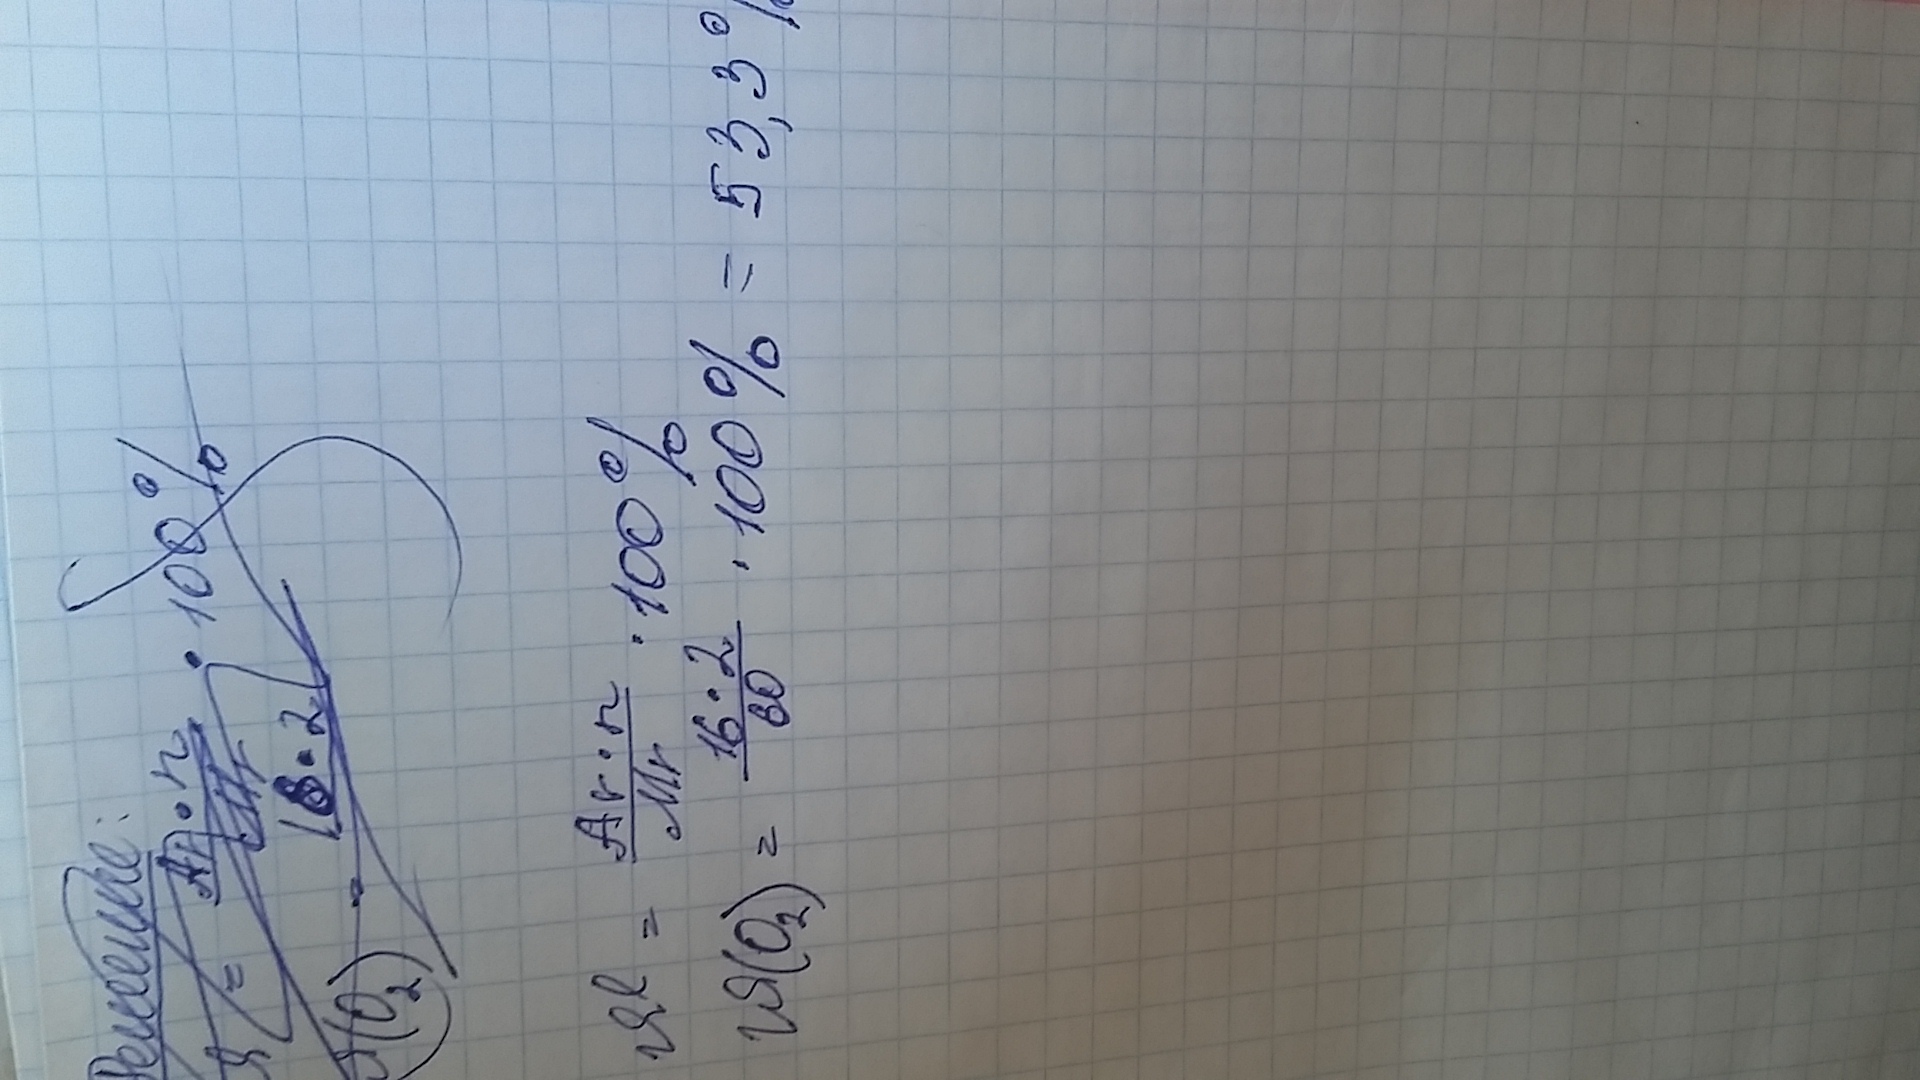 Решение:
= Ar·n / Mr · 100%
(O₂) = 16·2
W = Ar·n / Mr · 100%
W(O₂) = 16·2 / 60 · 100% = 53,3%